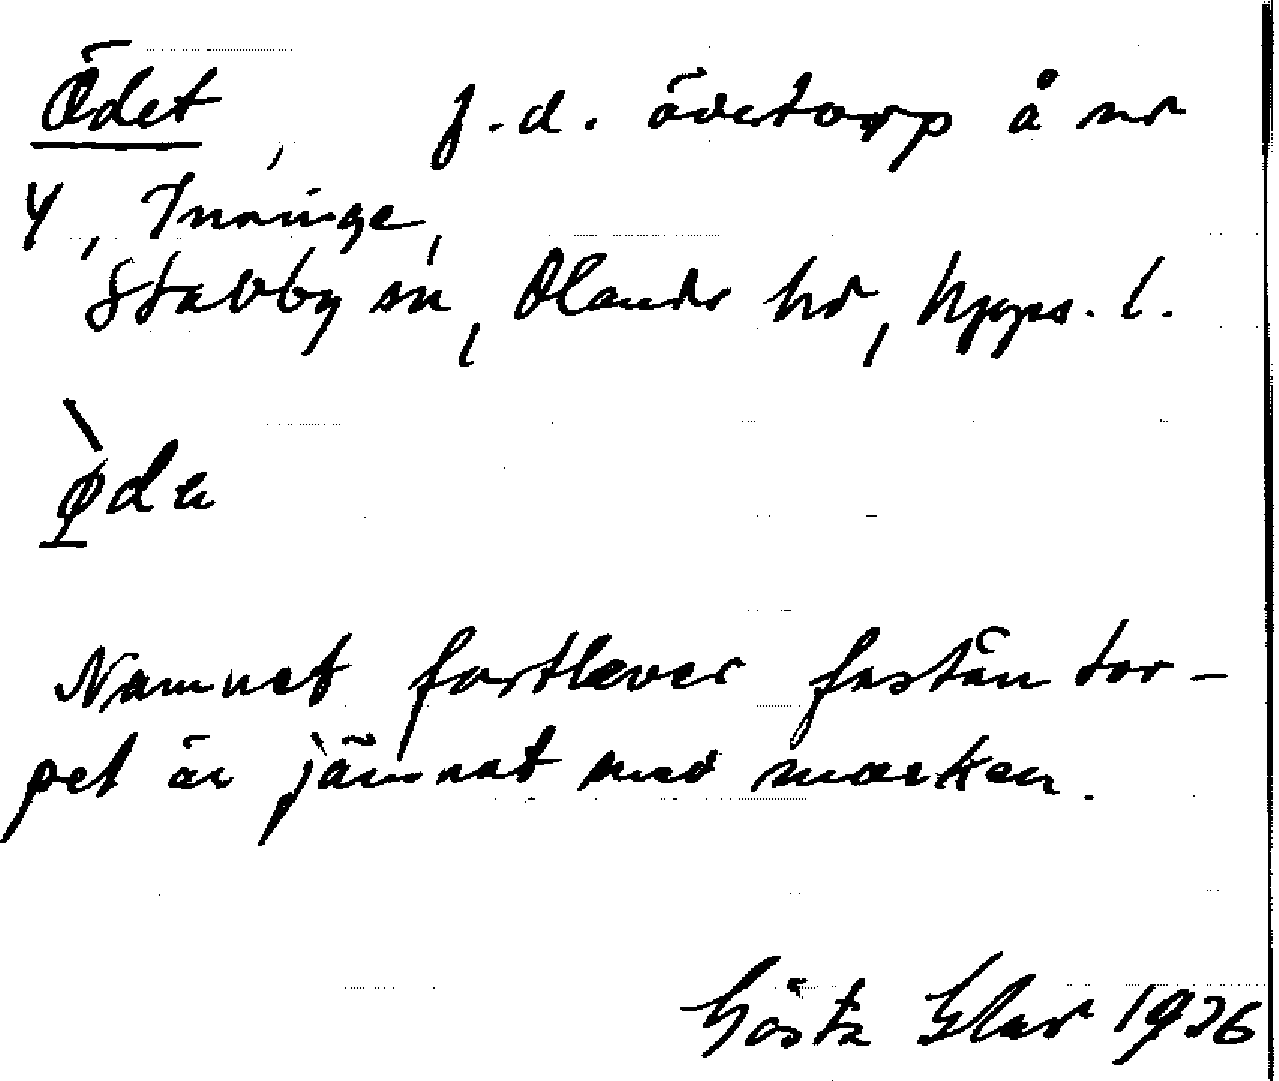 Ödet, f.d. ödetorp å nr
4, Inninge,
Stavby sn, Olands hd, Upps. l.
Namnet fortlever fastän tor-
pet är jämnat med marken.
Gösta 1936